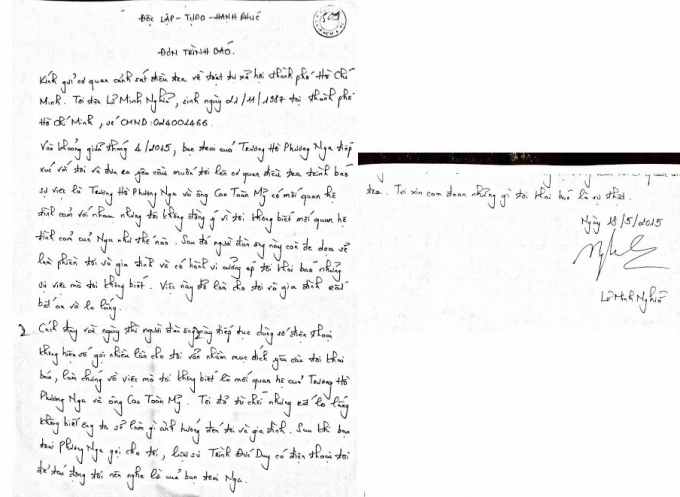 ĐỘC LẬP - TỰ DO - HẠNH PHÚC
ĐƠN TRÌNH BÁO.
Kính gửi cơ quan cảnh sát điều tra về trật tự xã hội thành phố Hồ Chí
Minh. Tôi tên Lê Minh Nghĩa, sinh ngày 21/11/1987 tại thành phố
Hồ Chí Minh, số CMND: 024001466.
Vào khoảng giữa tháng 4/2015, bạn trai của Trương Hồ Phương Nga tiếp
xúc với tôi và đưa ra yêu cầu muốn tôi lên cơ quan điều tra trình báo
sự việc là Trương Hồ Phương Nga và ông Cao Toàn Mỹ có mối quan hệ
tình cảm với nhau nhưng tôi không đồng ý vì tôi không biết mối quan hệ
tình cảm của Nga như thế nào. Sau đó người đàn ông này còn đe dọa sẽ
làm phiền tôi và gia đình và có hành vi cưỡng ép tôi khai báo những
sự việc mà tôi không biết. Việc này đã làm cho tôi và gia đình rất
bất an và lo lắng.
Cách đây vài ngày thì người đàn ông này tiếp tục dùng số điện thoại
không hiện số gọi nhiều lần cho tôi vẫn nhằm mục đích yêu cầu tôi khai
báo, làm chứng về việc mà tôi không biết là mối quan hệ của Trương Hồ
Phương Nga và ông Cao Toàn Mỹ. Tôi đã từ chối nhưng rất lo lắng
không biết ông ta sẽ làm gì ảnh hưởng đến tôi và gia đình. Sau khi bạn
trai Phương Nga gọi cho tôi, luật sư Trịnh Đức Duy có điện thoại tôi
để tác động tôi nên nghe lời của bạn trai Nga.
tra. Tôi xin cam đoan những gì tôi khai báo là sự thật.
Ngày 18/5/2015
Lê Minh Nghĩa